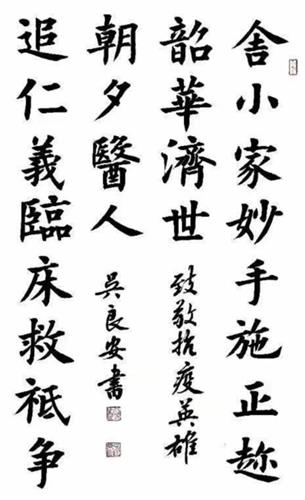 舍小家妙手施正趂
韶華濟世
致敬抗疫英雄
朝夕醫人
吳良安書
追仁義臨床救祗争